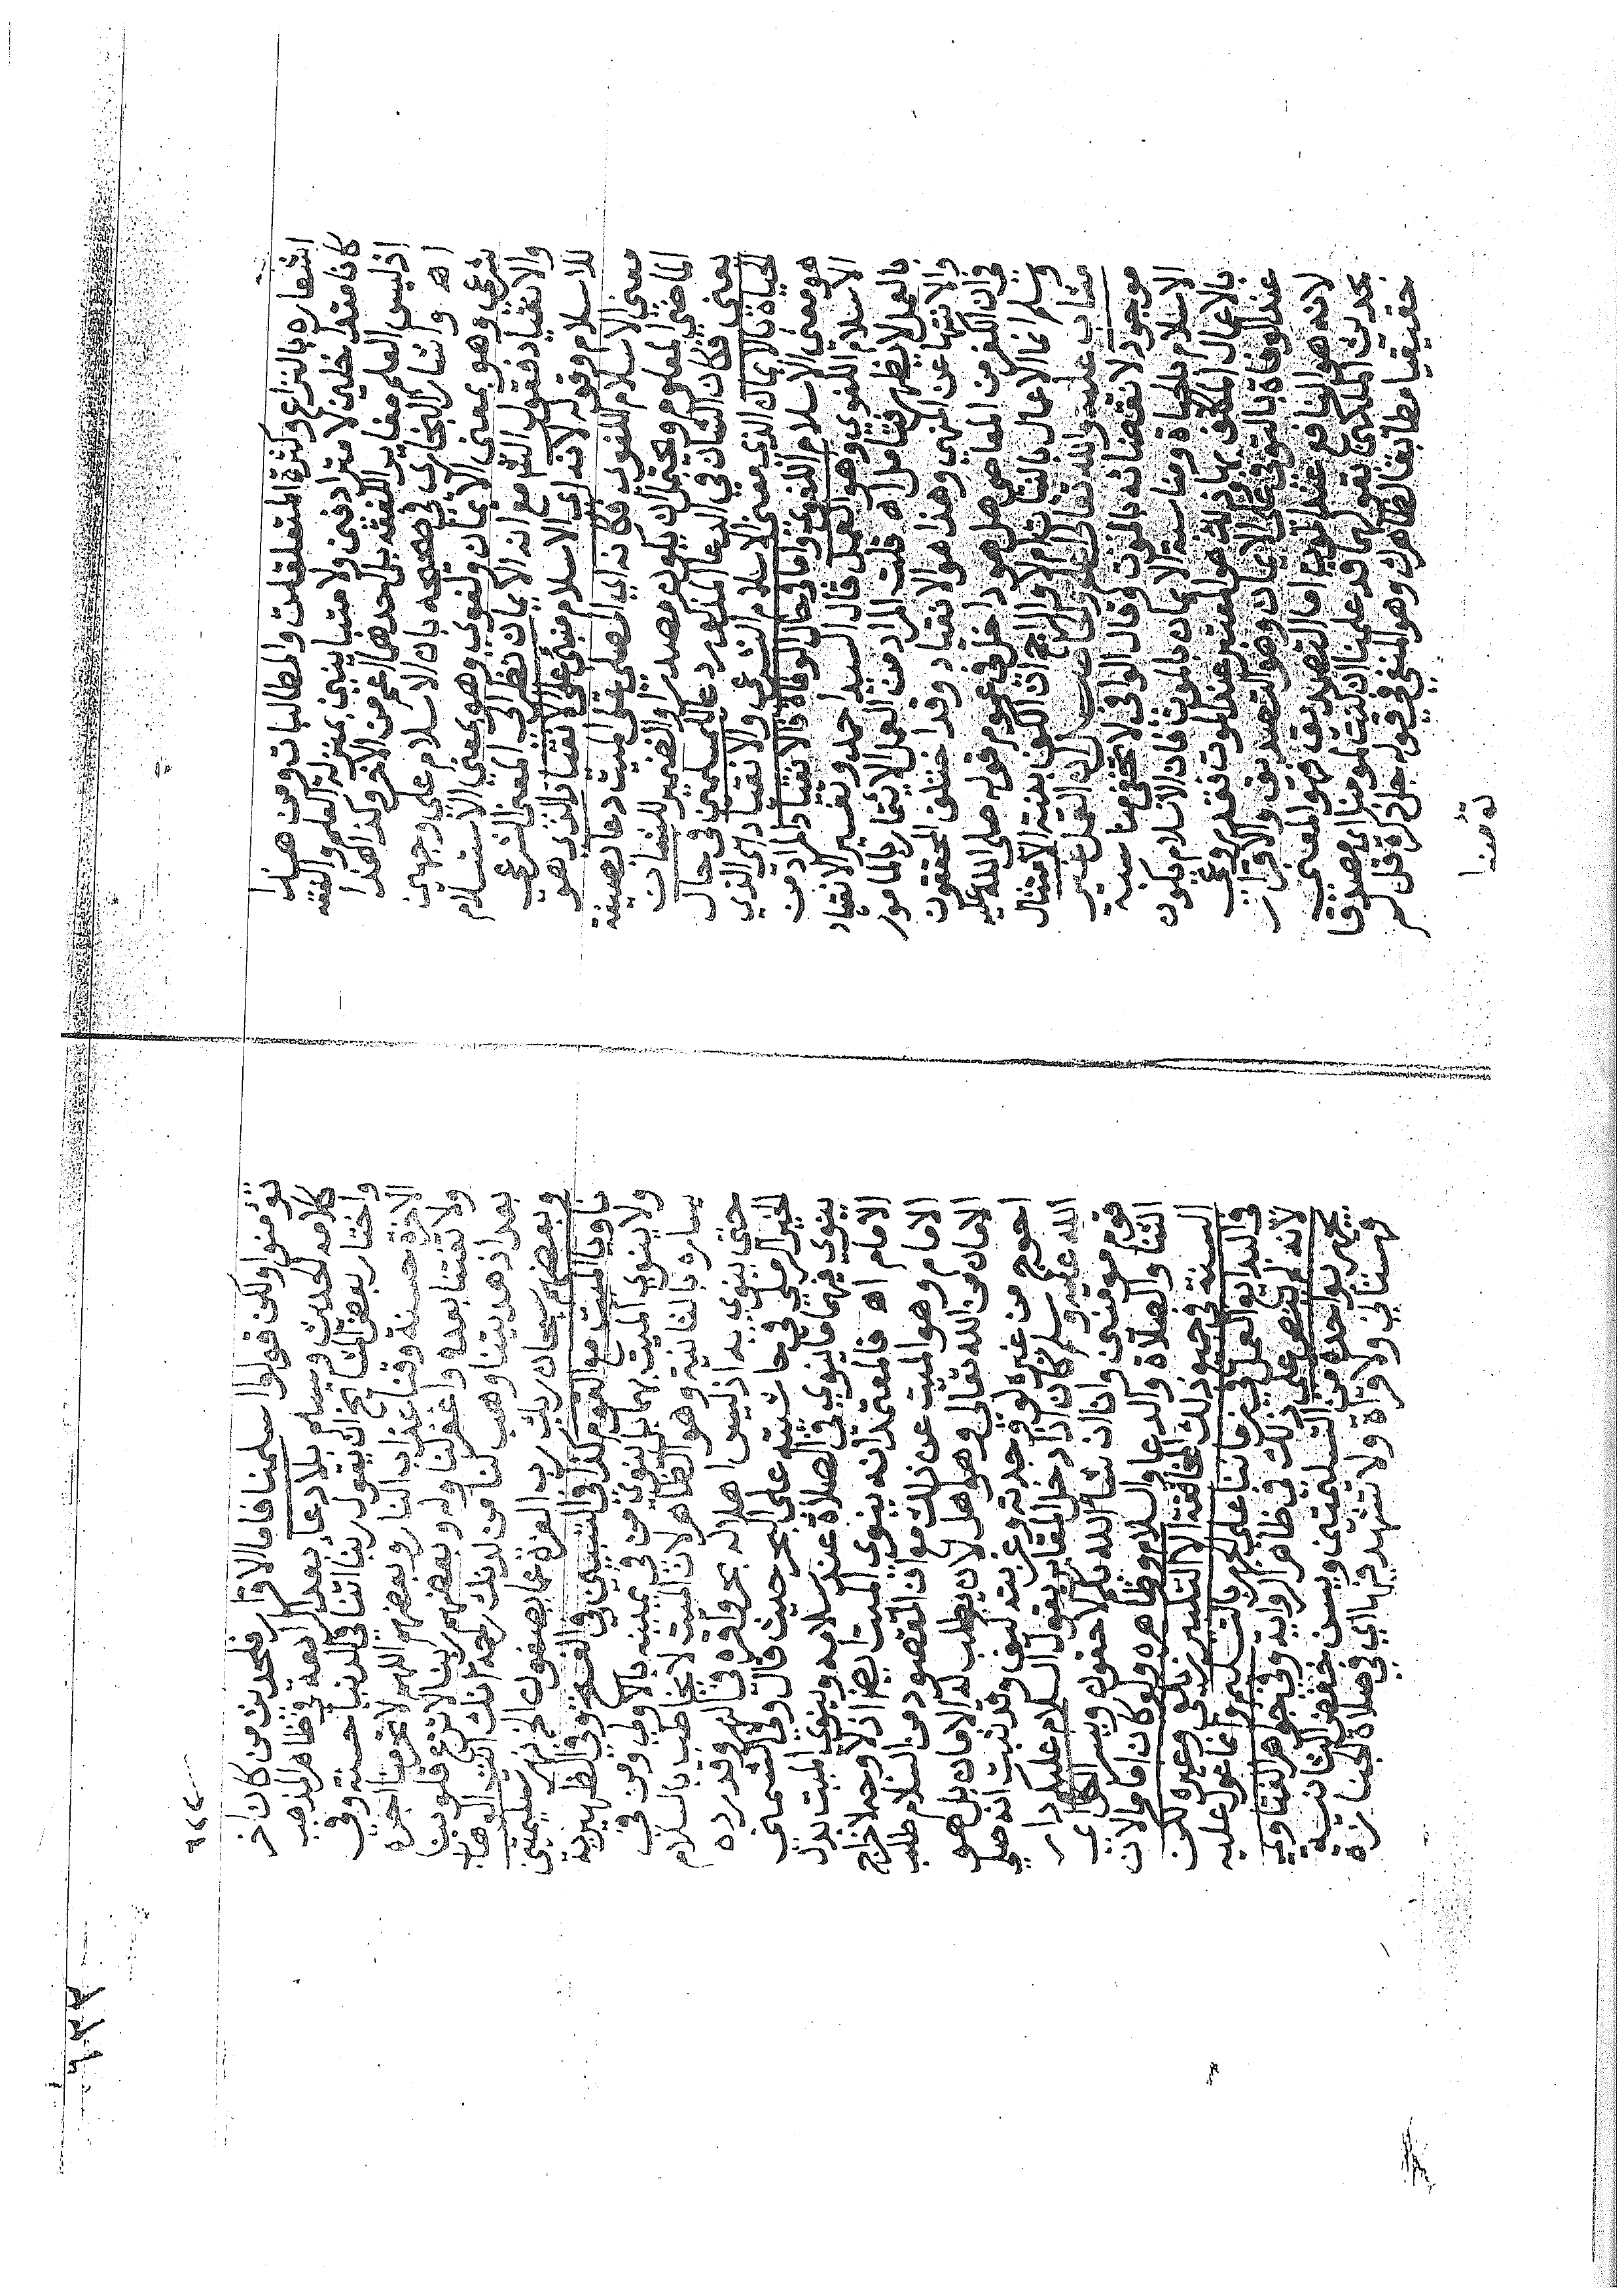 اشعاره بالنزاع وكثرة المتعلقات والمطالبات ومن هنا
كانا متداخلين لا مترادفين ولا متباينين بمنزلة العلم والفقه
اذ ليس العلم مغاير للفقه بل احدهما اعم من الآخر وكذا هذا
اه واشار البخاري في صحيحه بان الاسلام على وجهين
شرعي وهو بمعنى الايمان ولغوي وهو بمعنى الاستسلام
والانقياد فقول الشم مع انه الايمان نظر الى المعنى الشرعي
للاسلام وقوله لانه اي الاسلام مبني على الانقياد الذي هو
معنى الاسلام اللغوي فكانه اي المصلي على الميت دعا بصيغة
الماضي المعلوم ويحتمل ان يكون مصدرا والضمير للشان
يعني فكان الشان في الدعا المذكور دعا للمسلمين في حال
الحياة بالايمان الذي معنى الاسلام الشرعي والانقياد اي الذي
هو معنى الاسلام اللغوي واما في حال الوفاة فالانقياد المراد من
الاسلام اللغوي وهو العمل قال السيد احمد وتفسير الانقياد
بالعمل لا يظهر فتامل اه قلت المراد من العمل الايتمار بالمامور
والانتها عن المنهي وهذا هو الانقياد وقد اختلف المحققون
في ان الكف من المعاصي هل هو داخل في عموم قوله صلى الله عليه
وسلم انما الاعمال بالنيات ام لا والراجح ان الكف بنية الامتثال
مثاب عليه والله تعالى اعلم والحاصل ان العمل غير
موجود لانقضائه بالموت وقال الوافي لا يخفى مناسبة
الاسلام بالحياة ومناسبة الايمان بالموت فان الاسلام يكون
بالاعمال المكلف بها وذلك هو المعتبر عند الموت فقلم وفي
عند الوفاة بالتوفي على الايمان وهو التصديق والاقرار
لانه هو النافع عند الموت اما التصديق فهو المعني
بحديث الملكين بقولهما قد علمنا ان كنت لمومنا اي مصدقا
حقيقيا مطابقا لظاهرك وهو المنفي في قوله جل ذكره قل لم
تؤمنوا
٢٤٤
تومنوا ولكن قولوا اسلمنا فاما الاقرار فلحديث من كان آخر
كلامه الحديث وسلم بلا دعا بعد الرابعة في ظاهر المذهب
واختار بعض المشايخ ان يقول ربنا اتنا في الدنيا حسنة وفي
الآخرة حسنة وقنا عذاب النار وبعضهم اللهم لا تحرمنا اجره
ولا تفتنا بعده واغفر لنا وله وبعضهم ربنا لا تزغ قلوبنا
بعد اذ هديتنا وهب لنا من لدنك رحمة انك انت الوهاب
وبعضهم سبحان ربك رب العزة عما يصفون الخ نهر تسليمتين
ناويا الميت مع القوم كذا في التبيين وفي الفتح وفي الظهيرية
ولا ينوي الميت بهما بل ينوي من في يمينه بالاولى ومن في
يساره بالثانية وهو الظاهر لان الميت لا يخاطب بالسلام
حتى ينوي به اذ ليس اهلا له بحر واقره في النهر وقد رده
الخير الرملي في حاشيته على البحر حيث قال وفي الشمني
ينوي فيهما ما ينوي في الصلاة عند سلامه وينوي الميت بدل
الامام اه فالمعتمد انه ينوي الميت ايضا اذ لا وجه لاخراج
الامام وهو الميت عن ذلك مع ان المقصود من السلام طلب
الامان من الله تعالى وهو اهل لان يطلب له الامان بل هو
احوج من غيره لوحدته وغربته كيف وقد ثبت انه صلى
الله عليه وسلم كان اذا دخل المقابر يقول السلام عليكم دار
قوم مومنين وانا ان شا الله بكم لاحقون ويسر الكل اي
الثنا والصلاة والدعا والسلام وظاهره ولو كان اماما لان
السنة في حبور ذلك المخافتة الا التكبير زيلعي وغيره لكن
في البدايع العمل في زماننا على الجهر بالتسليم وانما عول عليه
لانه لم ينص على ذلك في ظاهر الرواية وفي جواهر الفتاوى
يجهر بواحدة من التسليمتين ويسن خفض الثانية
قهستاني ولا قراءة ولا تشهد فيها اي في صلاة الجنازة